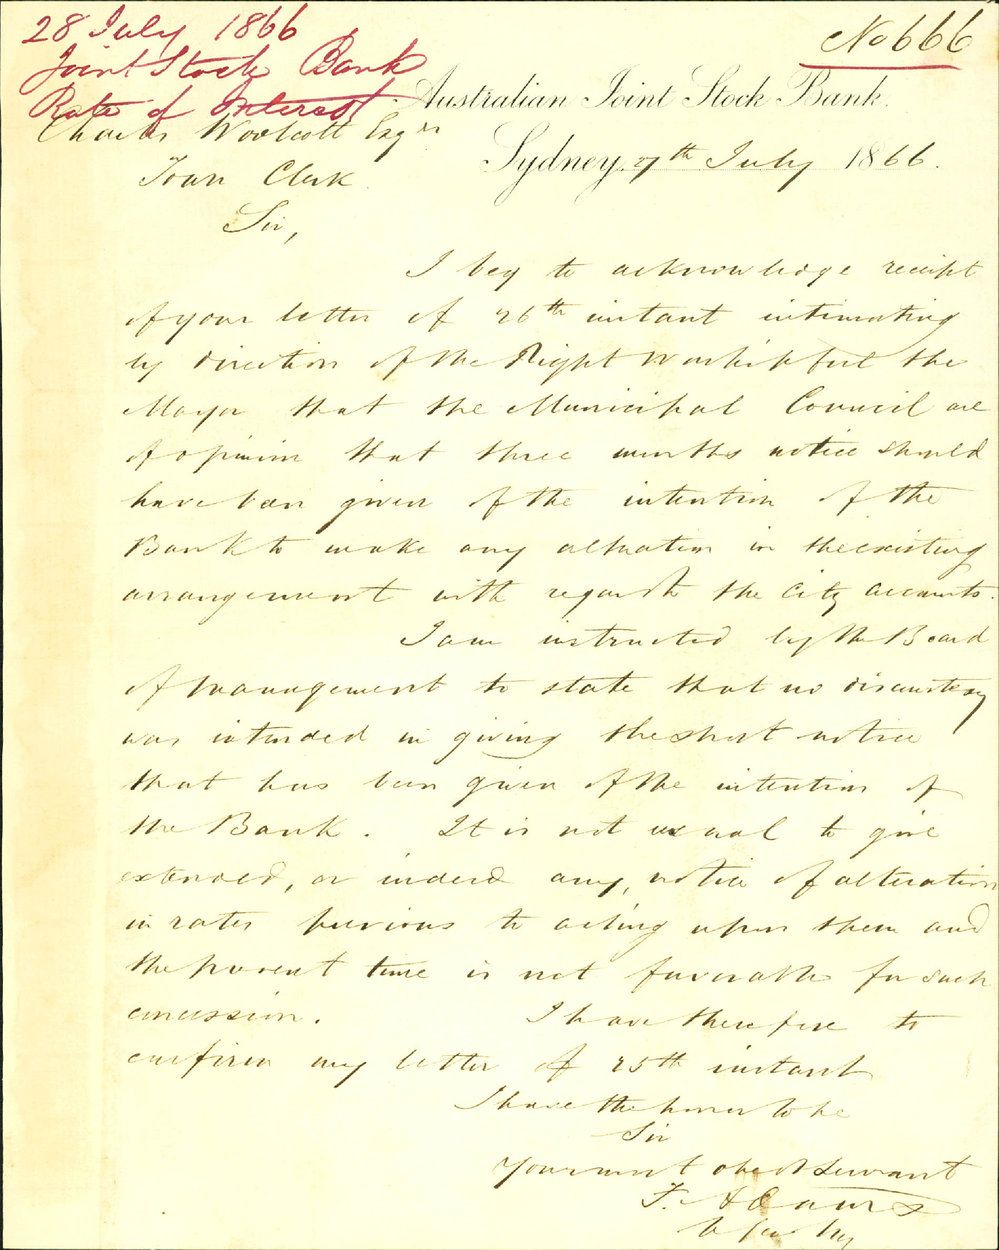 28 July 1866
Joint Stock Bank
Rate of Interest
No 666
Australian Joint Stock Bank.
Sydney, 27th July 1866.
Charles Woolcott Esqre
Town Clerk
Sir,
I beg to acknowledge receipt
of your letter of 26th instant intimating
by direction of the Right Worshipful the
Mayor that the Municipal Council are
of opinion that three months notice should
have been given of the intention of the
Bank to make any alteration in the existing
arrangement with regard to the City Accounts.
I am instructed by the Board
of Management to state that no discourtesy
was intended in giving the short notice
that has been given of the intention of
the Bank. It is not usual to give
extended, or indeed any, notice of alteration
in rates previous to acting upon them and
the present time is not favorable for such
concession. I have therefore to
confirm my letter of 25th instant
I have the honor to be
Sir
Your most obedt Servant
F. Adams